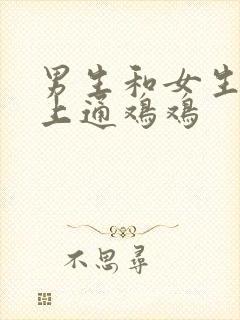 男生和女生
上通鸡鸡
不思寻